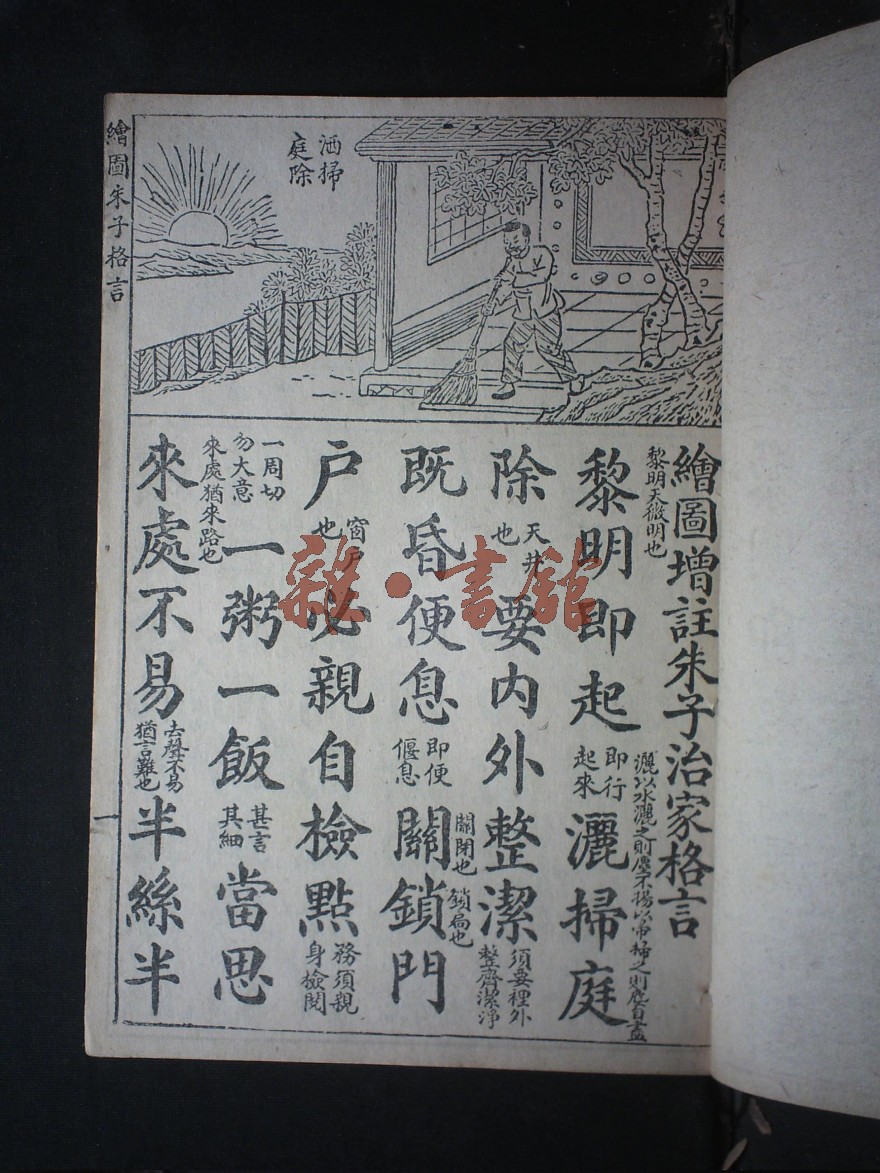 繪圖朱子格言
洒掃
庭除
繪圖增註朱子治家格言
黎明天微明也
黎明即起
即行
起來
灑掃庭
灑以水灑之則塵不揚以帚掃之則塵自盡
除
天井
也
要內外整潔
須要裡外
整齊潔淨
既昏便息
即便
偃息
關鎖門
關閉也
鎖扃也
户
窗戶
也
必親自檢點
務須親
身檢閱
一周切
勿大意
一粥一飯
甚言
其細
當思
來處猶來路也
來處不易
去聲不易
猶言難也
半絲半
一
雜·書館